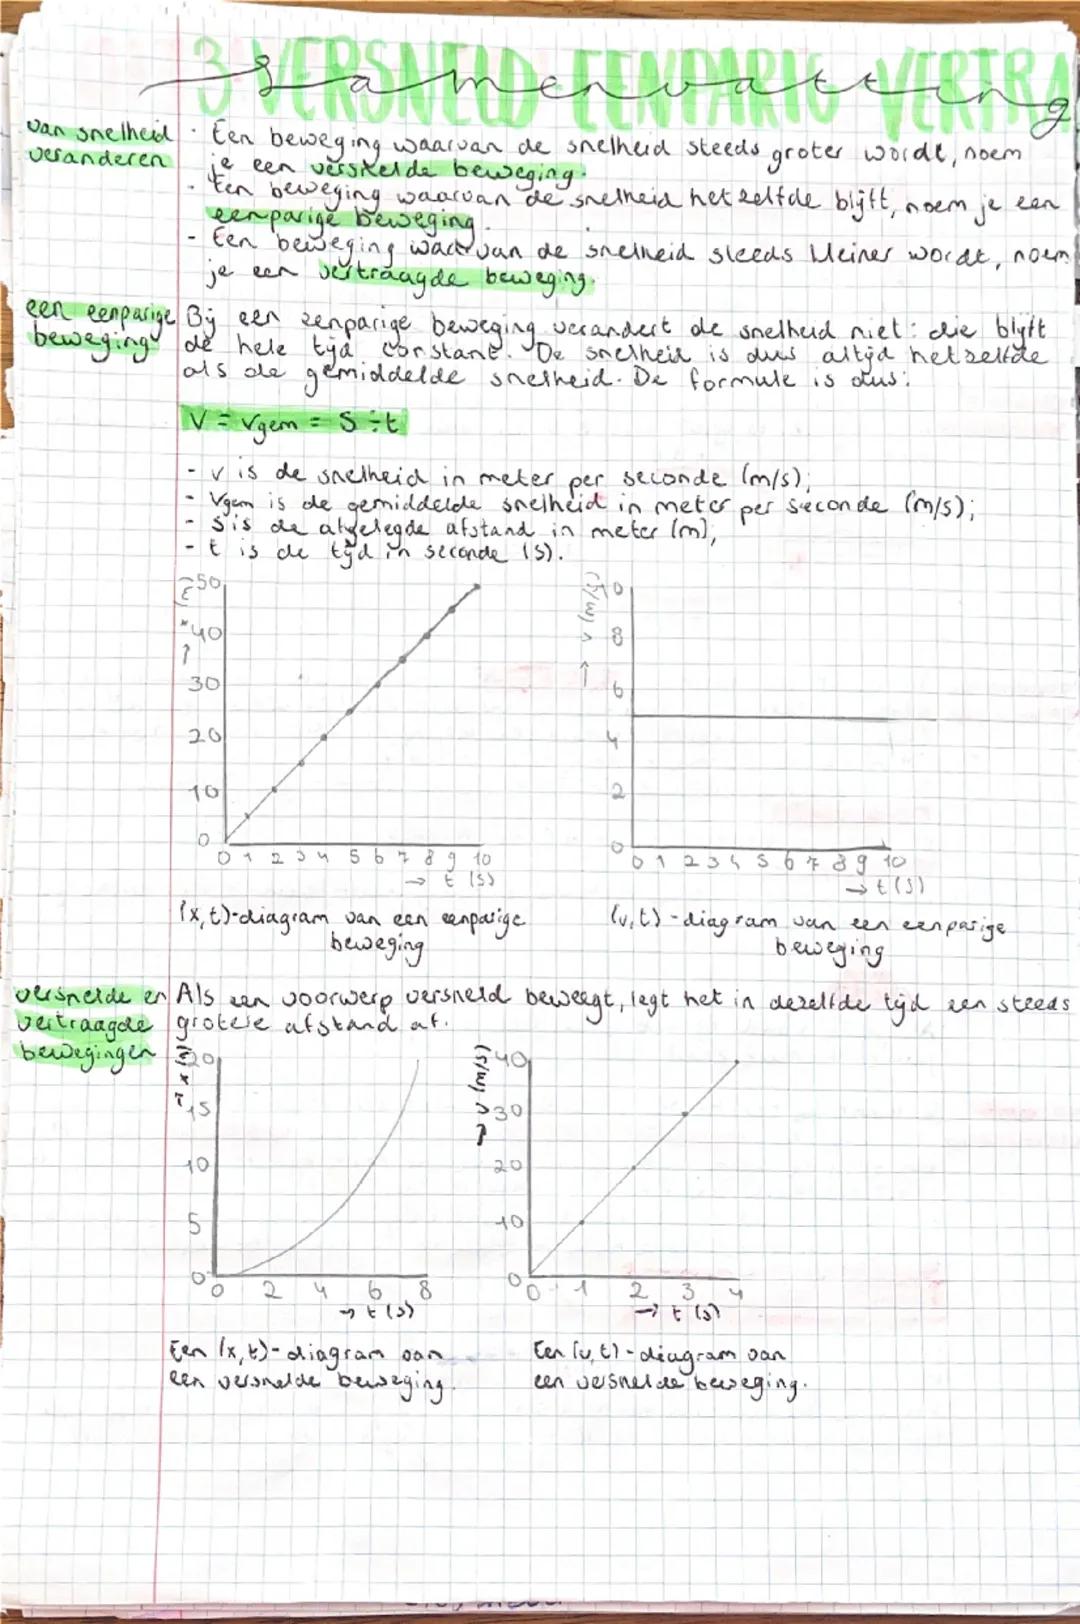 3 VERSNELD EENPARIG VERTRA
Samenvatting
van snelheid
veranderen
· Een beweging waarvan de snelheid steeds groter wordt, noem
je een versnelde beweging.
- Een beweging waarvan de snelheid hetzelfde blijft, noem je een
eenparige beweging.
- Een beweging waarvan de snelheid steeds kleiner wordt, noem
je een vertraagde beweging.
een eenparige
beweging
Bij een eenparige beweging verandert de snelheid niet: die blijft
de hele tijd constant. De snelheid is dus altijd hetzelfde
als de gemiddelde snelheid. De formule is dus:
V = Vgem = S ÷ t
- v is de snelheid in meter per seconde (m/s);
- Vgem is de gemiddelde snelheid in meter per seconde (m/s);
- S is de afgelegde afstand in meter (m);
- t is de tijd in seconde (s).
→ x (m)
50
40
30
20
10
0
0 1 2 3 4 5 6 7 8 9 10
→ t (s)
(x,t)-diagram van een eenparige
beweging
→ v (m/s)
10
8
6
4
2
0
0 1 2 3 4 5 6 7 8 9 10
→ t (s)
(v,t)-diagram van een eenparige
beweging
versnelde en
vertraagde
bewegingen
Als een voorwerp versneld beweegt, legt het in dezelfde tijd een steeds
grotere afstand af.
→ x (m)
20
15
10
5
0
0 2 4 6 8
→ t (s)
Een (x,t)-diagram van
een versnelde beweging.
→ v (m/s)
40
30
20
10
0
0 1 2 3 4
→ t (s)
Een (v,t)-diagram van
een versnelde beweging.